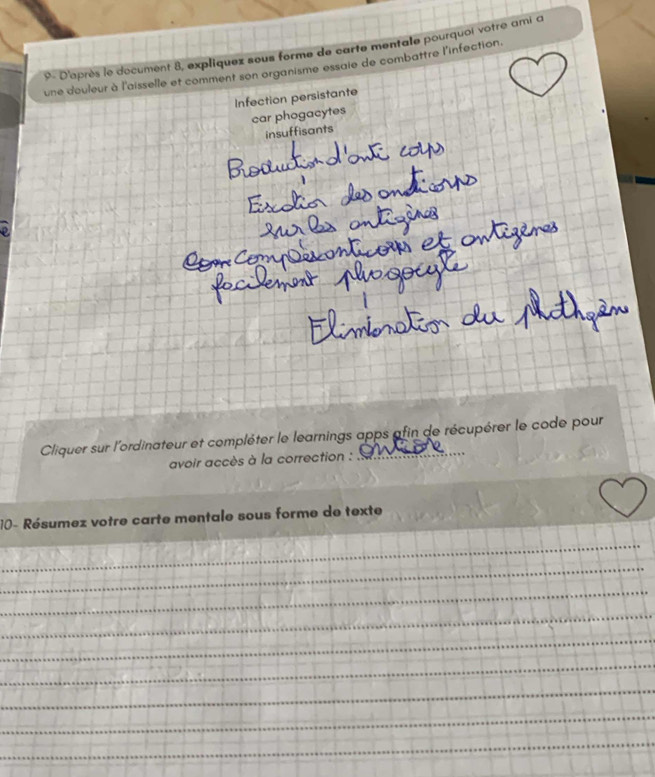 9- D'après le document 8, expliquez sous forme de carte mentale pourquoi votre ami a
une douleur à l'aisselle et comment son organisme essaie de combattre l'infection.
Infection persistante
car phogacytes
insuffisants
Production d'anti corps
des anticorps
sur les antigènes
Complexe anticorps et antigènes
facilement phagocyté
Elimination du
Cliquer sur l'ordinateur et compléter le learnings apps afin de récupérer le code pour
avoir accès à la correction :
10- Résumez votre carte mentale sous forme de texte